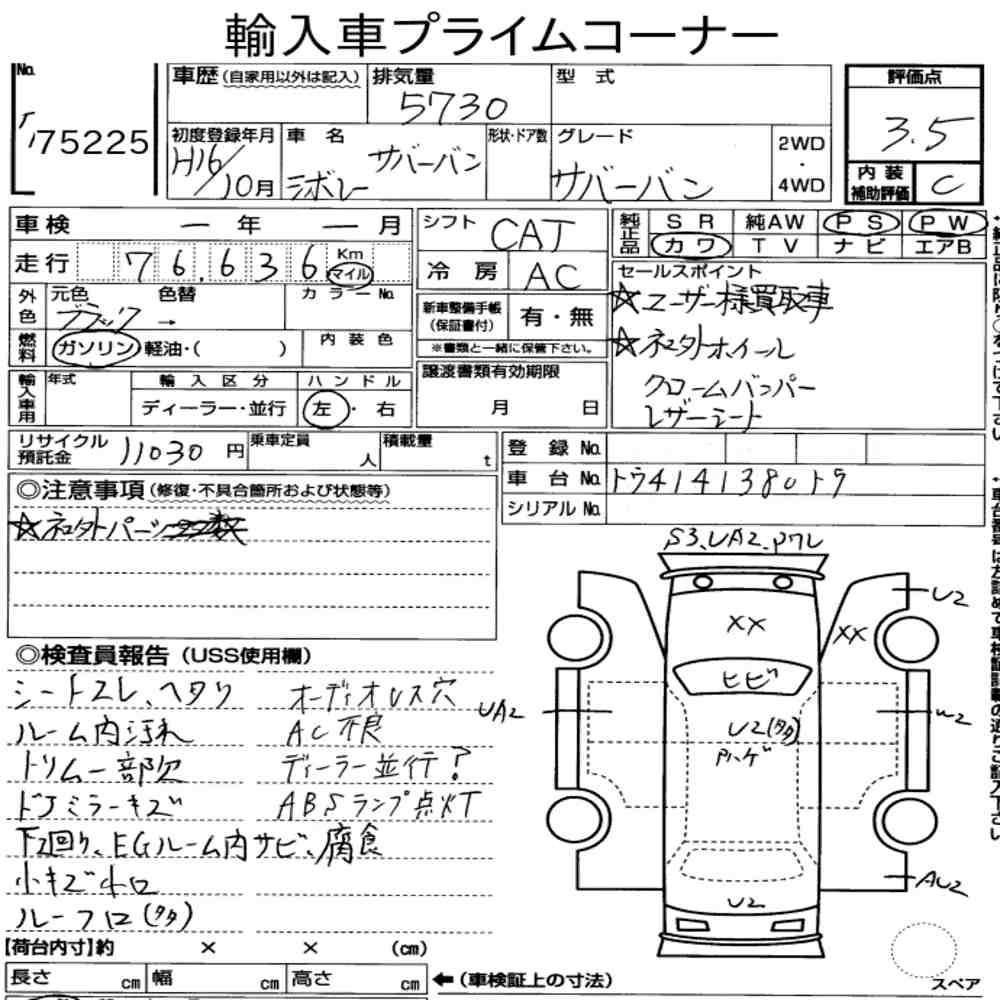 輸入車プライムコーナー
No. 75225
車歴(自家用以外は記入) 排気量 5730 型式
評価点 3.5
初度登録年月 H16/10月 車名 シボレー サバーバン 形状・ドア数 グレード サバーバン 2WD・4WD
内装補助評価 C
車検 ー年 ー月
シフト CAT
純正品 SR 純AW PS PW
カワ TV ナビ エアB
走行 76,636 Km マイル
冷房 AC
セールスポイント
☆ユーザー様買取車
外色 元色 ブラック → 色替 カラーNo.
新車整備手帳(保証書付) 有・無
☆社外ホイール
燃料 ガソリン 軽油・( ) 内装色
※書類と一緒に保管下さい。
クロームバンパー
輸入車用 年式 輸入区分 ハンドル
譲渡書類有効期限
レザーシート
ディーラー・並行 左・右
月 日
リサイクル預託金 11030円 乗車定員 人 積載量 t
登録No.
車台No. トウ4141380トウ
シリアルNo.
◎注意事項(修復・不具合箇所および状態等)
☆社外パーツ多数
S3、UA2、Pワレ
U2
XX
XX
ヒビ
UA2
U2(タタ)
ハゲ
U2
AU2
スペア
◎検査員報告(USS使用欄)
シートスレ、ヘタリ オーディオレス穴
ルーム内汚れ AC不良
トリム一部欠 ディーラー並行?
ドアミラーキズ ABSランプ点灯
下回り、EGルーム内サビ、腐食
小キズ凹
ルーフ凹(タタ)
【荷台内寸】約 × × (cm)
長さ cm 幅 cm 高さ cm ←(車検証上の寸法)